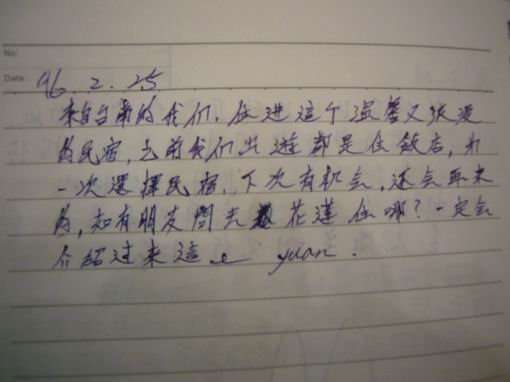 No:
Date:
96.2.25
来自台南的我们,住进这个温馨又浪漫
的民宿,之前我们出遊都是住飯店,第
一次選擇民宿,下次有机会,还会再来
的,如有朋友問去花蓮住哪?一定会
介紹过来這 e yuan.